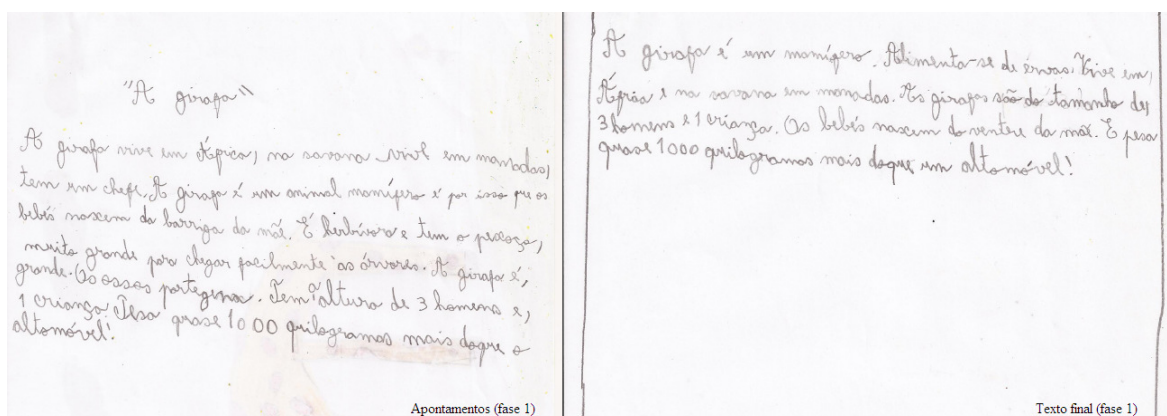 "A girafa"
A girafa vive em África, na savana vive em manadas,
tem um chefe. A girafa é um animal mamífero é por isso que os
bebés nascem da barriga da mãe. É herbívora e tem o pescoço,
muito grande para chegar facilmente as árvores. A girafa é,
grande. Os ossos portegena. Tem a altura de 3 homens e,
1 criança Pesa quase 1000 quilogramas mais doque o
altomóvel!
Apontamentos (fase 1)
A girafa é um mamífero. Alimenta-se de érvas. Vive em,
África e na savana em manadas. As girafas são do tamanho de,
3 homens e 1 criança. Os bebés nascem do ventre da mãe. E pesa
quase 1000 quilogramas mais doque um altomóvel!
Texto final (fase 1)